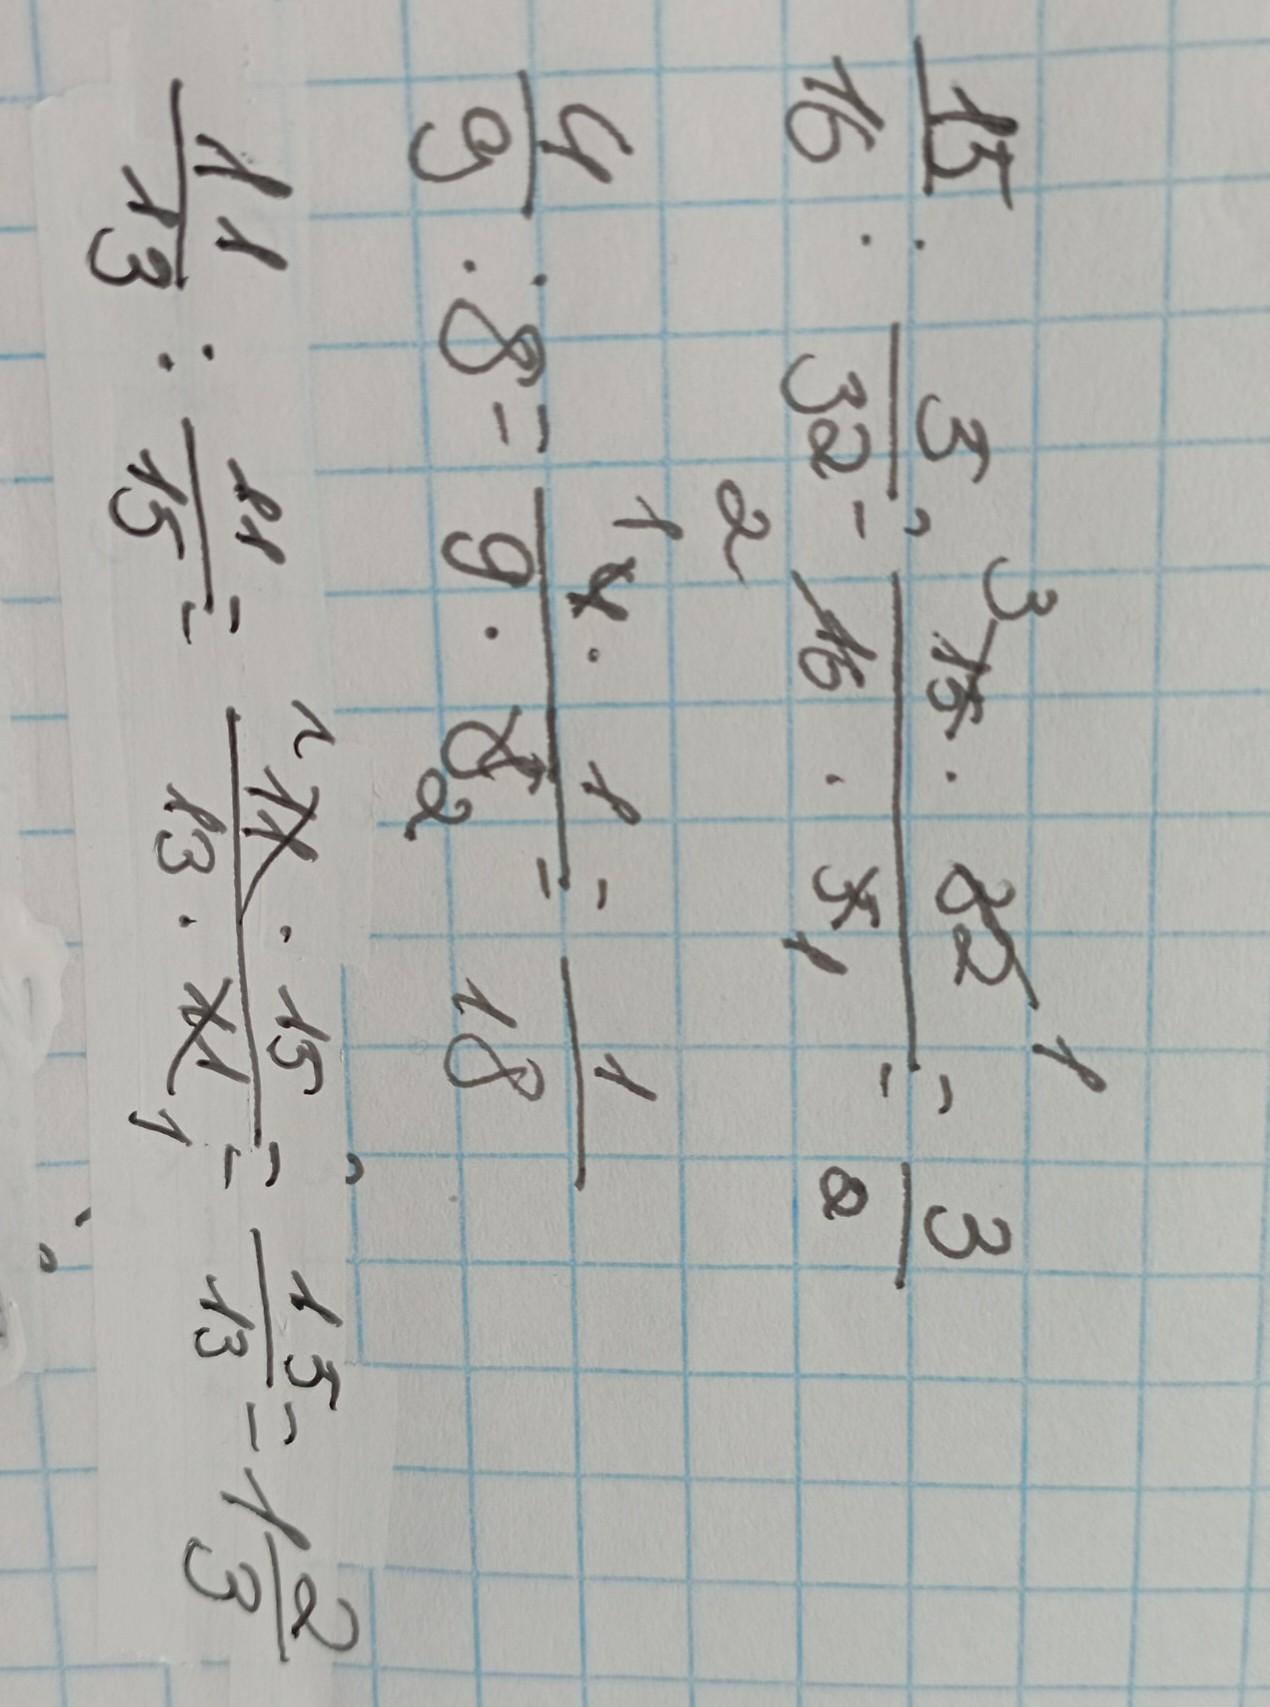 15/16 : 5/32 = (15 · 32)/(16 · 5) = 3/2
4/9 : 8 = (4 · 1)/(9 · 8) = 1/18
11/13 : 11/15 = (11 · 15)/(13 · 11) = 15/13 = 1 2/3